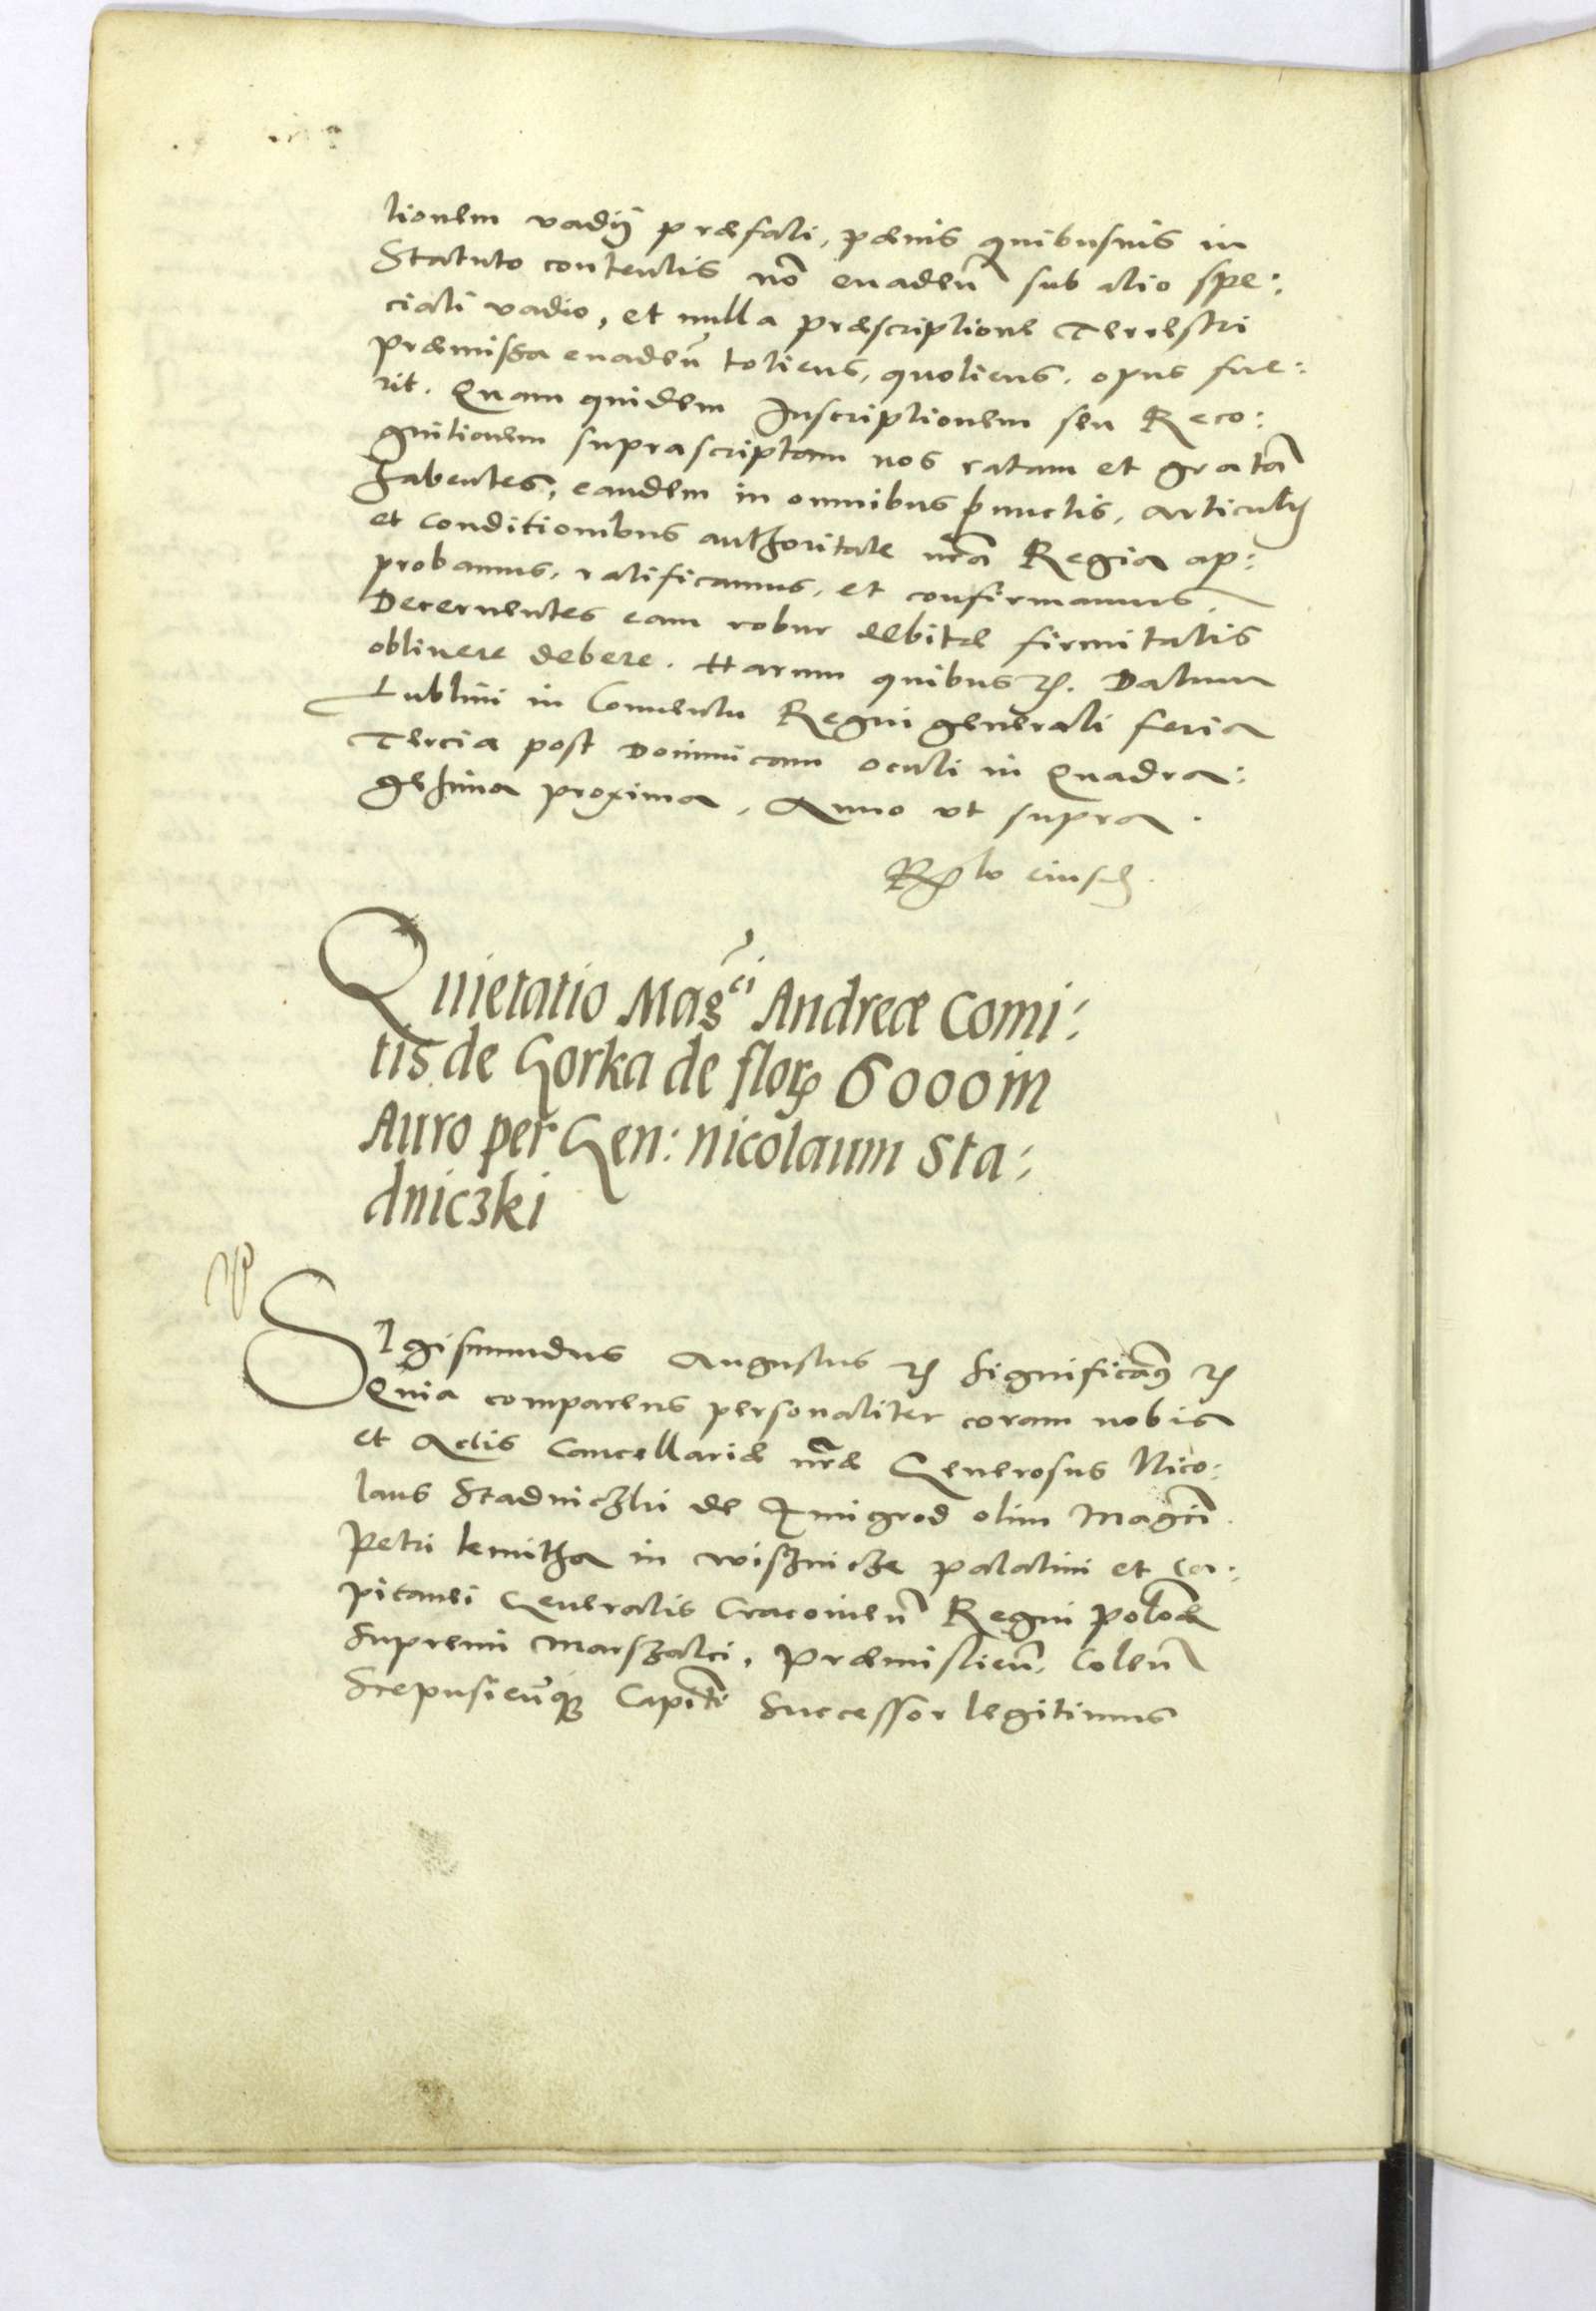 tionem vadij præfati, pænis quibusuis in
Statuto contentis nõ euadeñ sub alio spe:
ciali vadio, et nulla præscriptione Terrestri
præmissa euadeñ totiens, quotiens, opus fue:
rit. Quam quidem Inscriptionem seu Reco:
gnitionem suprascriptam nos ratam et gratã
habentes, eandem in omnibus punctis, articulis
et conditionibus authoritate nrã Regia ap:
probamus, ratificamus, et confirmamus.
Decernentes eam robur debitæ firmitatis
obtinere debere. Harum quibus etc. Datum
Lublini in Conuentu Regni generali feria
Tercia post Dominicam oculi in Quadra:
gesima proxima, Anno vt supra.
eiusd.
Quietatio Magci Andreæ Comi:
tis de Gorka de flor 6000 in
Auro per Gen: nicolaum Sta:
dniczki
SIgismundus Augustus etc Significamus etc
Quia comparens personaliter coram nobis
et Actis Cancellariæ nræ Generosus Nico:
laus Stadniczki de Xmigrod olim Magci
Petri kmitha in wisznicze palatini et Ca:
pitanei Generalis Cracouieñ Regni Polõæ
Supremi Marszalci, Præmislieñ, Coleñ
Scepusieñq Capiti Successor legitimus